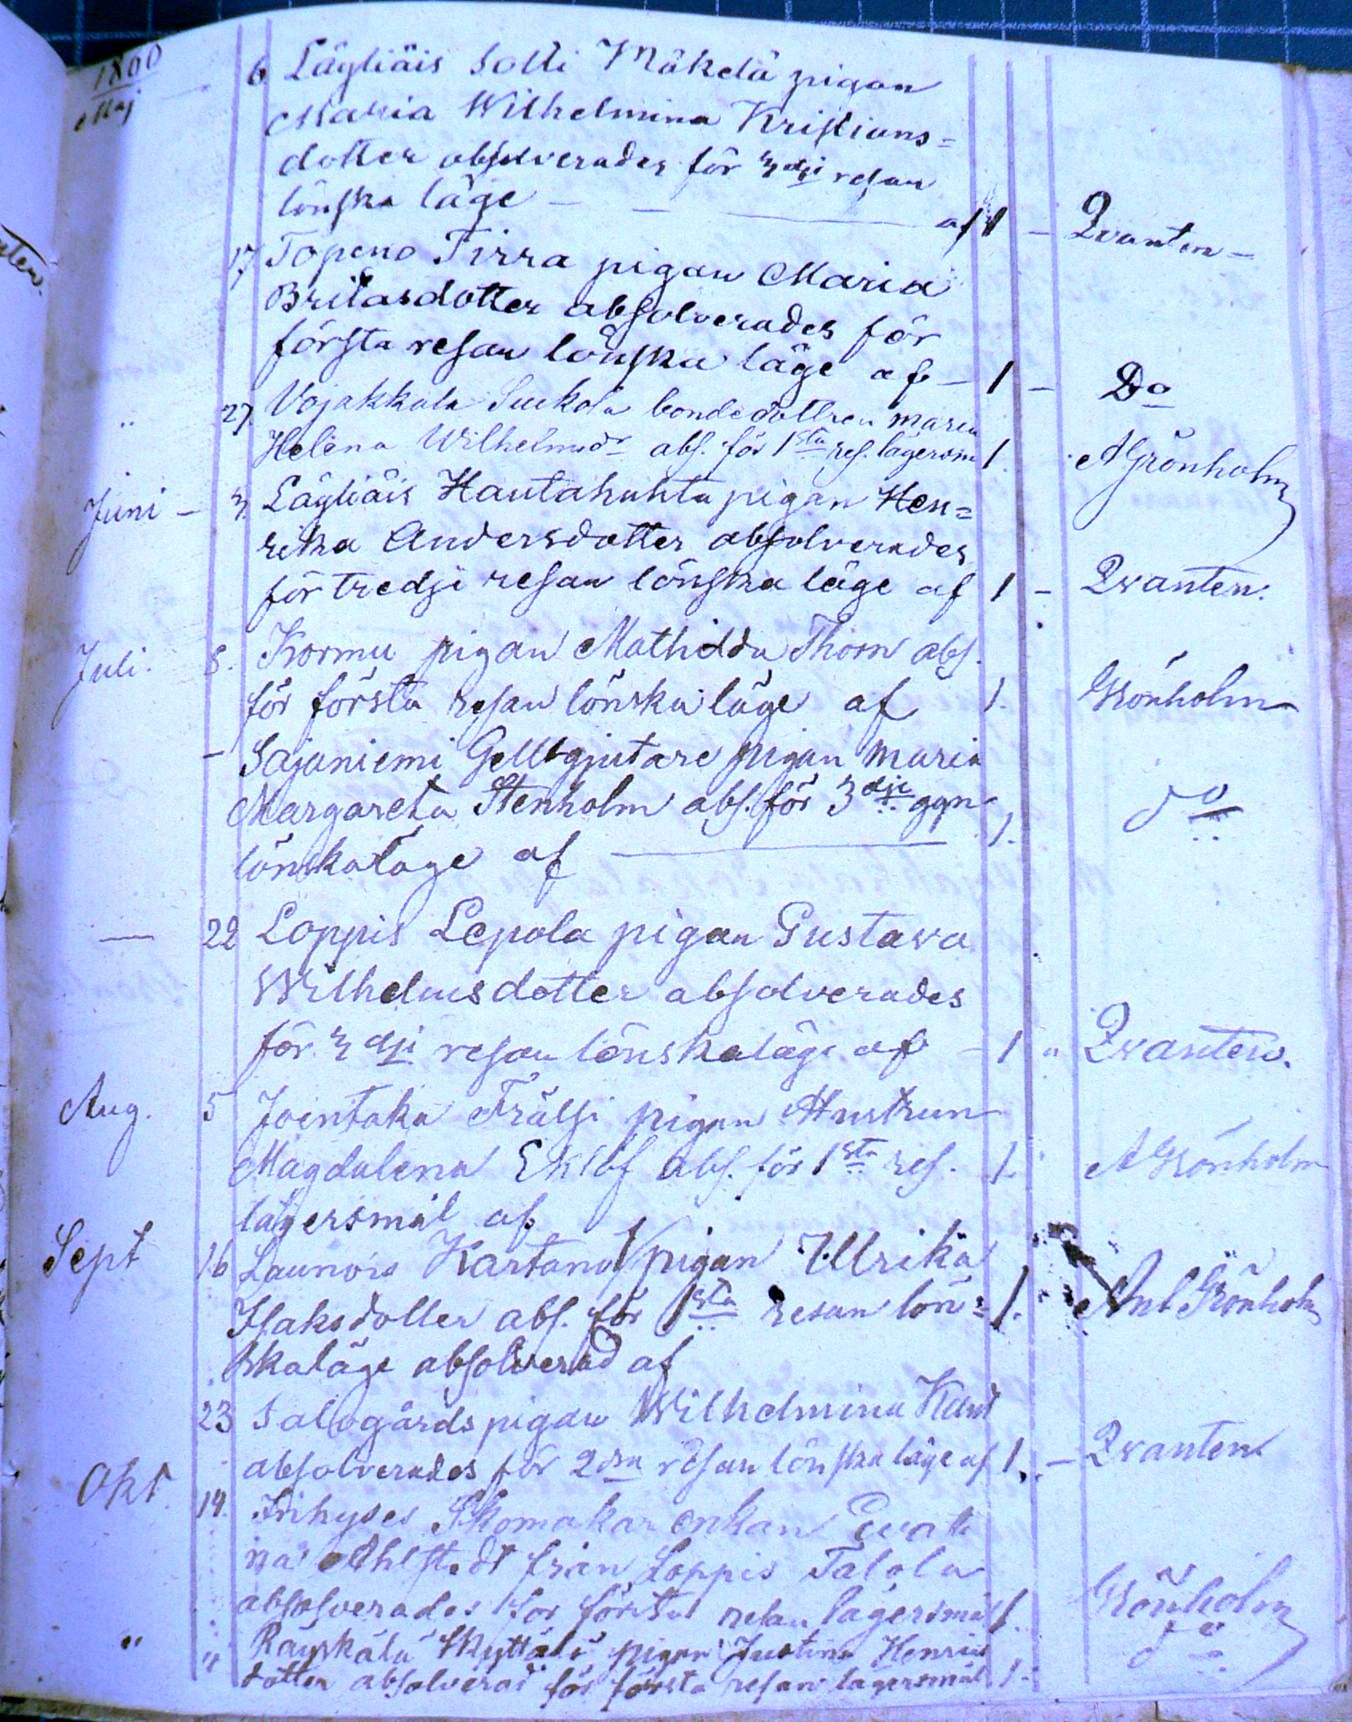 1860
Maj 6 Läyliäis Solli Mäkelä pigan
Maria Wilhelmina Kristians=
dotter absolverades för 3dji resan
lönska läge — — af 1 — Qvanten —
17 Topeno Pirra pigan Maria
Britasdotter absolverades för
första resan lönska läge af — 1 — Do
" 27 Vojakkala Suckola bondedottren Maria
Helena Wilhelmsdr abs. för 1sta res. lägersm 1. AGrönholm
Juni — 3. Läyliäis Hautahuhta pigan Hen=
rika Andersdotter absolverades
för tredji resan lönska läge af 1 — Qvanten.
Juli. 8. Kormu pigan Mathilda Thorn abs.
för första resan lönska läge af 1. Grönholm
— Sajaniemi Gellbgjutare pigan Maria
Margareta Stenholm abs. för 3dje ggn
lönskaläge af — 1. do
— 22 Loppis Lepola pigan Gustava
Wilhelmsdotter absolverades
för 3dji resan lönskaläge af — 1 " Qvanten.
Aug. 5 Joentaka Frälsi pigan
Magdalena Eklöf abs. för 1sta res. 1. A Grönholm
lägersmål af
Sept 16 Launois Kartano pigan Ulrika
Isaksdotter abs. för 1sta resan lön= 1. Ant Grönholm
skaläge absolverad af
23 Salogårds pigan Wilhelmina
absolverades för 2dra resan lönska läge af 1. — Qvanten
Okt. 14. Inhyses Skomakar enkan Evati
na Ahlstedt från Loppis Talola
absolverades för första resan lägersmål 1. Grönholm
" " Räyskälä Skyttälä pigan Justina Henriks
dotter absolverad för första resan lägersmål 1. do